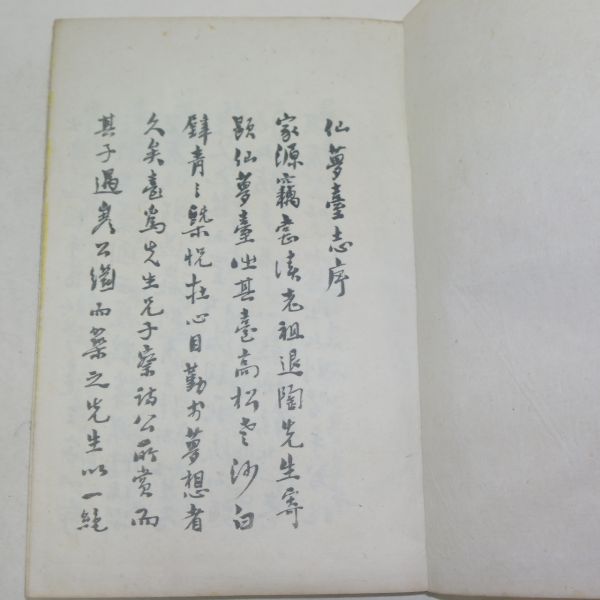 仙夢臺志序
家源竊嘗讀老祖退陶先生寄
題仙夢臺此其臺高松老沙白
壁靑〻槩怳在心目勤於夢想者
久矣臺爲先生兄子察訪公所賞而
其子遇巖公繼而築之先生以一絶